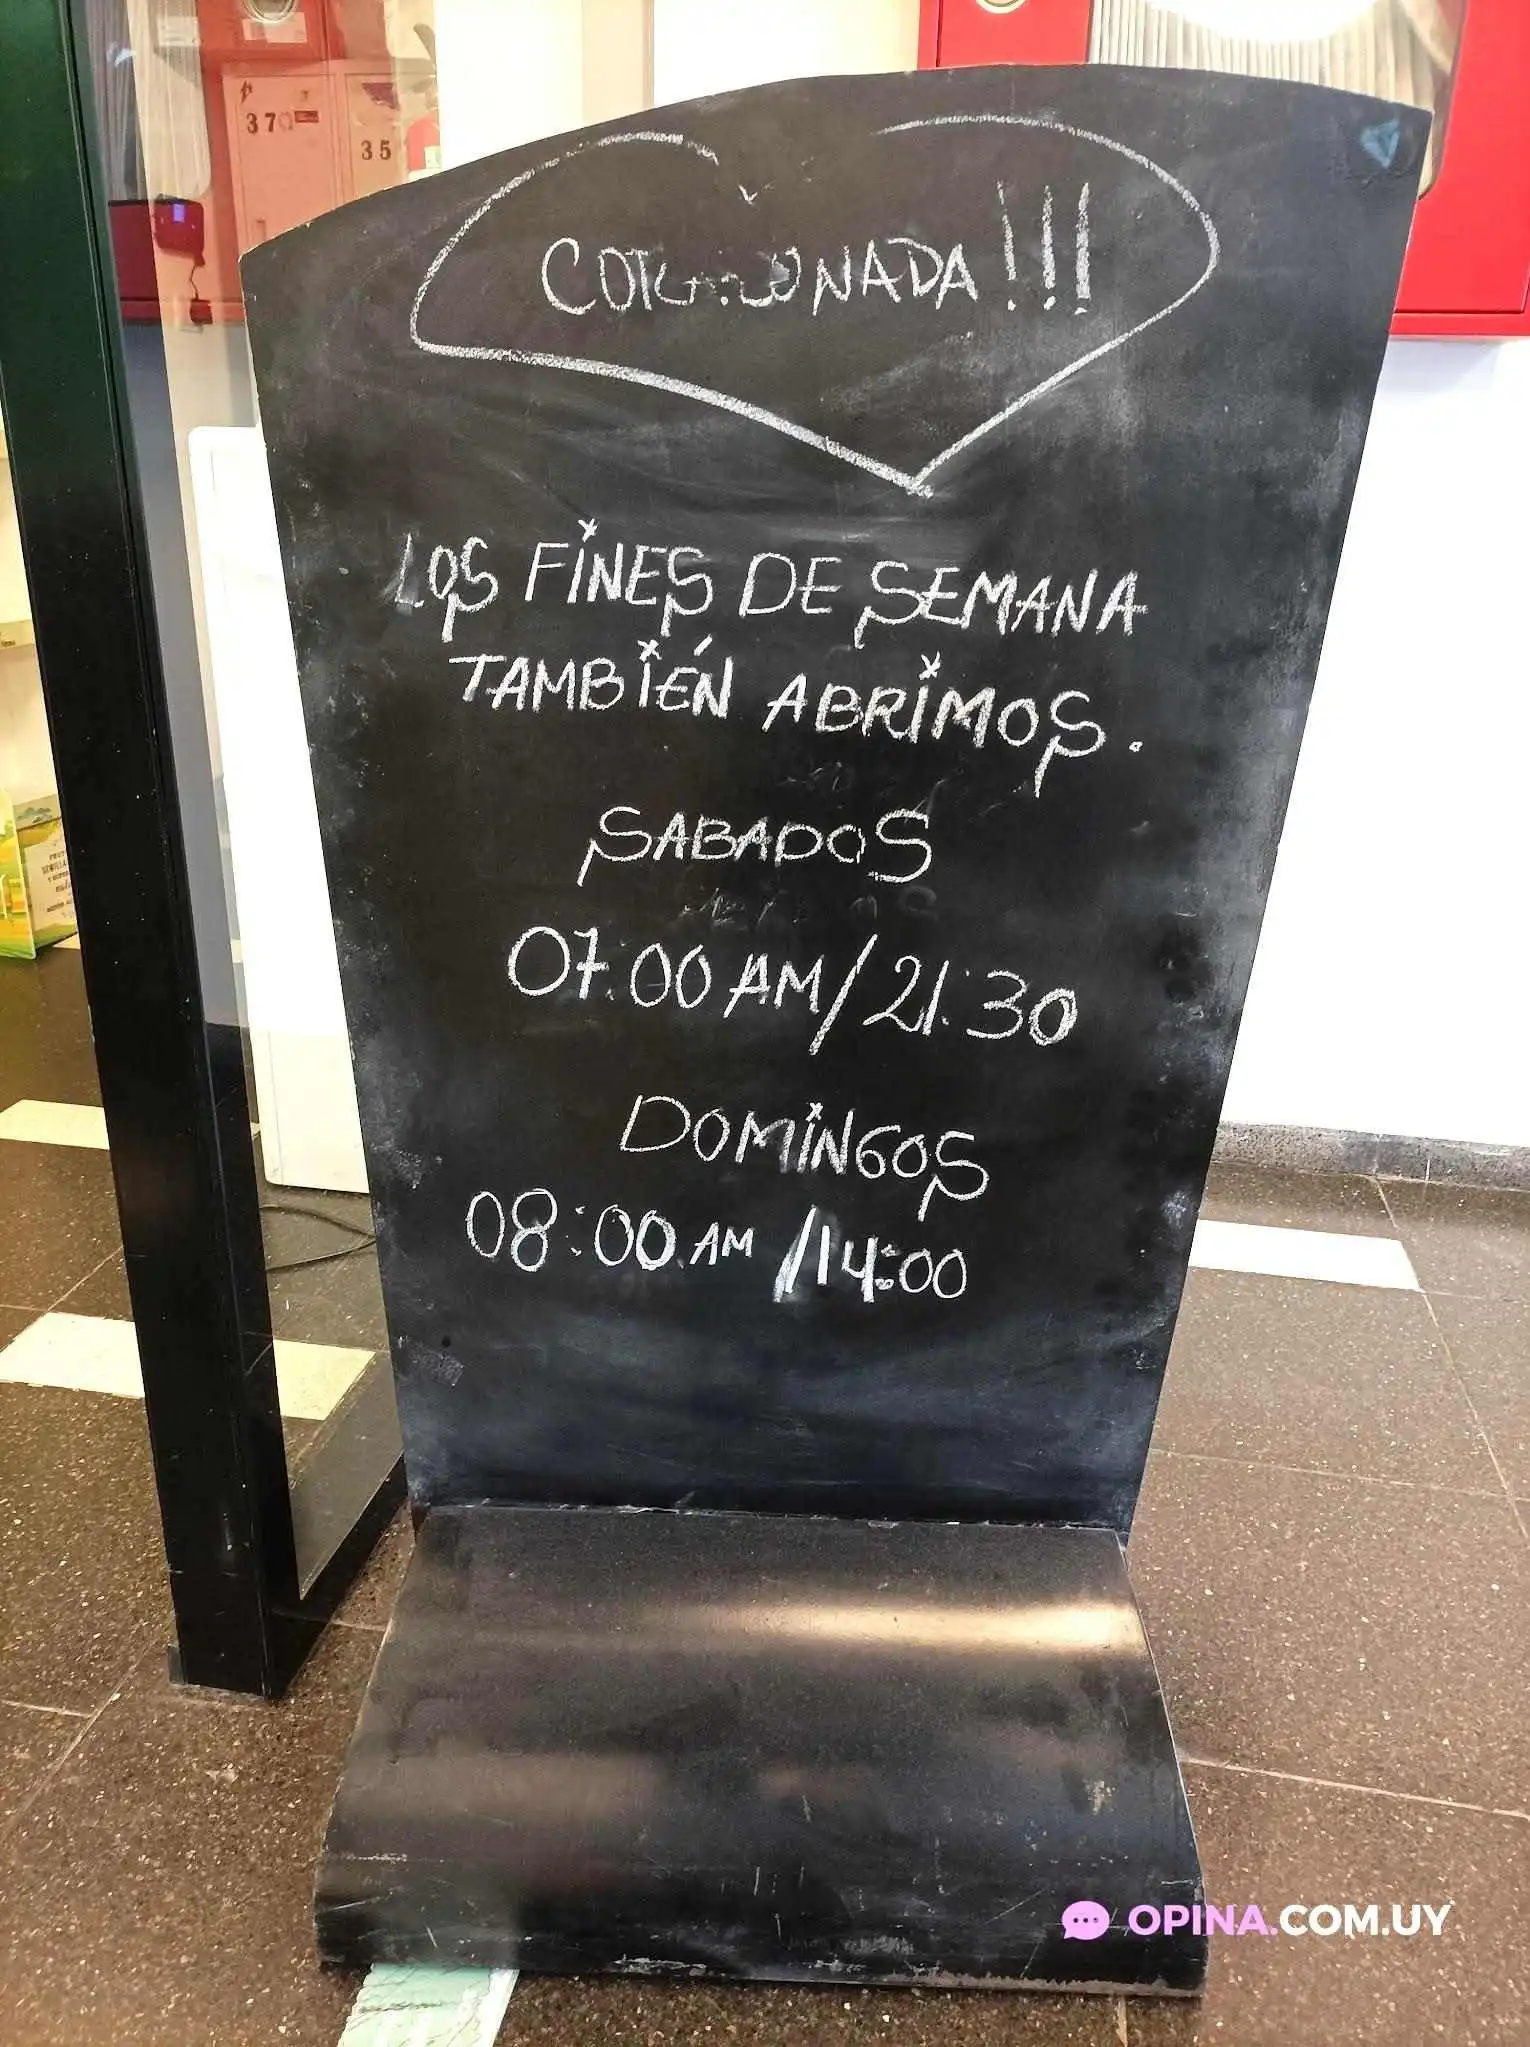 37
35
LOS FINES DE SEMANA
TAMBIÉN ABRIMOS.
SABADOS
07.00 AM/21:30
DOMINGOS
08:00 AM/14:00
OPINA.COM.UY